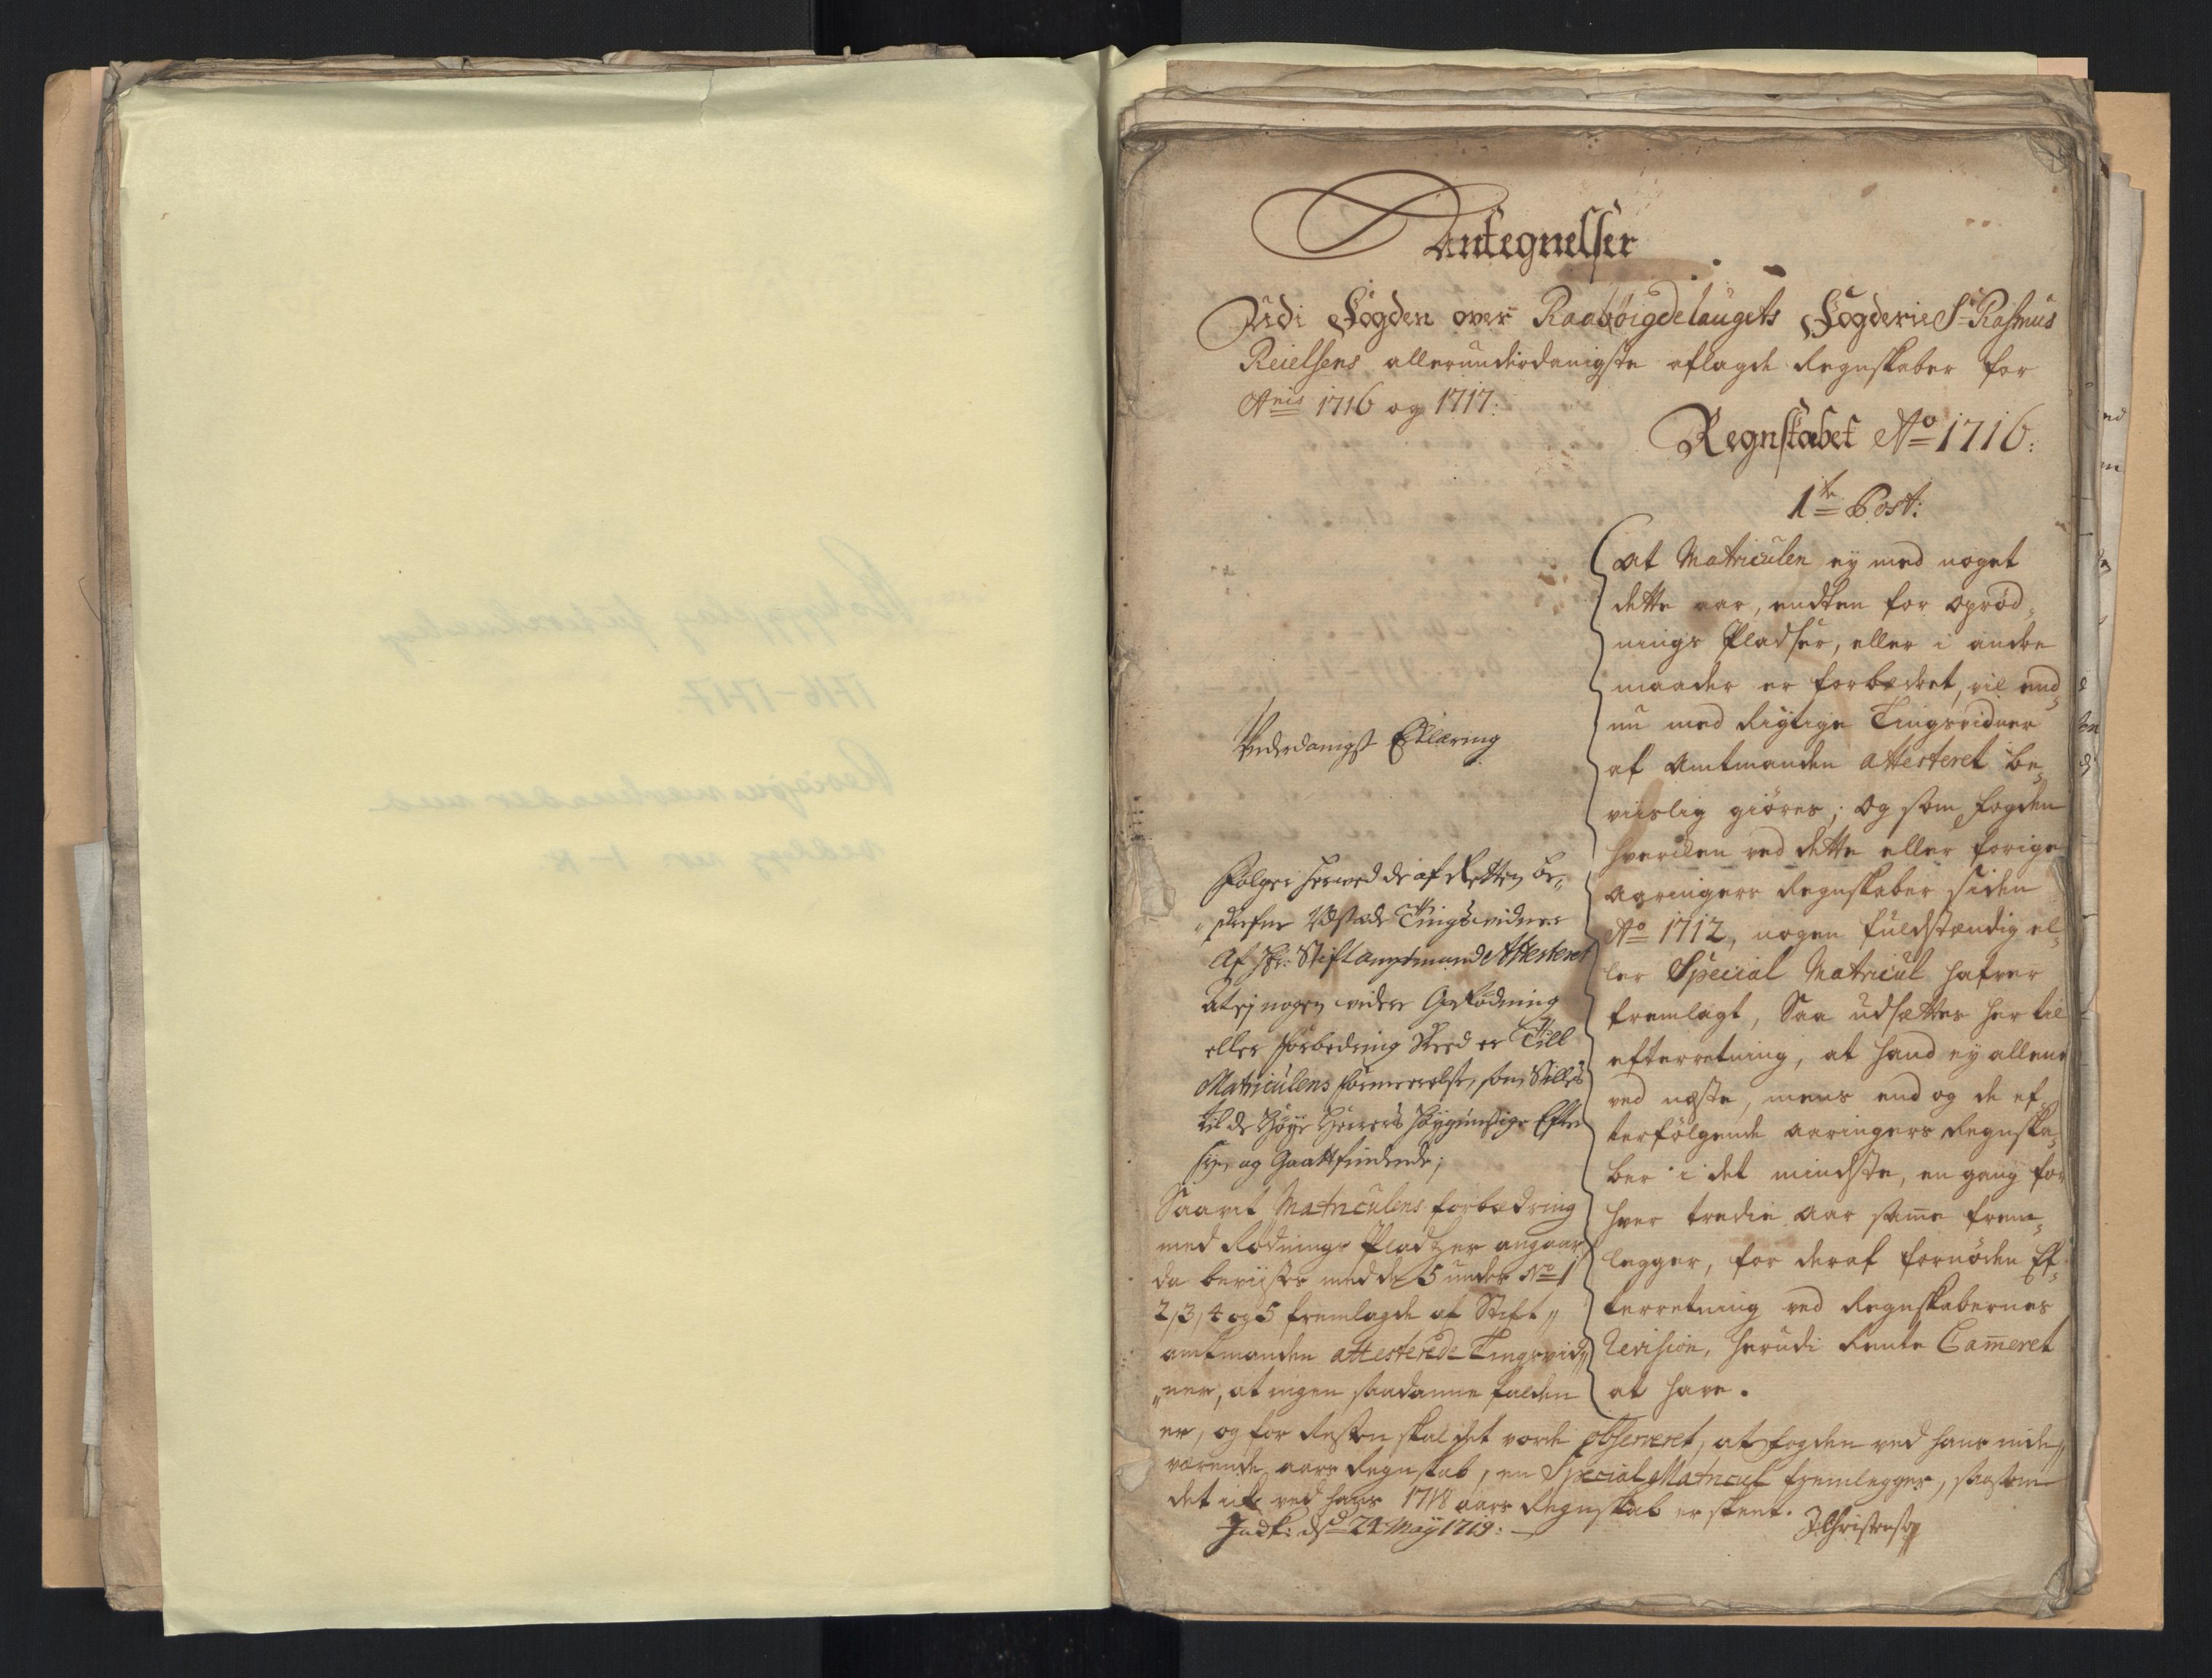 Antegnelser
Udi Fogden over Raabøigdelaugets Fogderie Sr Rasmus
Reielsens allerunderdanigste aflagde Regnskaber for
Anis 1716 og 1717:
Regnskabet Ao 1716:
1te Post:
At Matriculen ey med noget
dette aar, endten for oprød„
nings Pladser, eller i andre
maader er forbedret, vil end„
nu med rigtige Tingsvidner
af Amtmanden attesteret be„
viislig giøres; og som fogden
hverchen ved dette eller forige
aaringers Regnskaber siden
Ao 1712, nogen fuldstændig el„
ler Special Matricul hafver
fremlagt, Saa udsættes her til
efterretning, at hand ey allene
ved næste, mens end og de ef„
terfølgende aaringers Regnska„
ber i det mindste, en gang for
hver tredie aar same frem„
legger, for deraf fornøden Ef„
terretning ved Regnskabernes
Revision, herudi Rente Cameret
at have.
Underdanigst Erklæring
Følger herved de af Retten be„
„skrefne Udstæde Tingsvidner
Af Hr: Stiftamptmand Attesteret
At ej nogen videre
eller forbedring skeed er Till
Matriculens formeerelse, som Stilles
til de Høye Herrers Høygunstige Efter
siun og Gaatfindende;
Saavit Matriculens forbædring
med Rødnings Pladzer angaar,
da beviises med de 5 under No 1
2, 3, 4 og 5 fremlagde af Stift„
amtmanden attesterede Tingsvid„
„ner, at ingen saadanne falden
er, og for Resten skal det vorde observeret, at fogden ved hans inde„
værende aars Regnskab, en Special Matricul fremlegger, saasom
det iche ved hans 1718 aars Regnskab er skeet.
dd 24 Maij 1719:
J Christensen